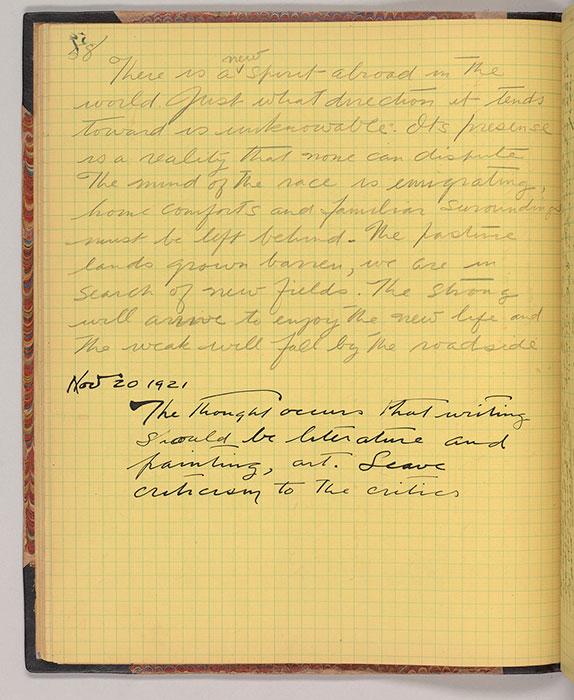 58
new
There is a spirit abroad in the
world Just what direction it tends
toward is unknowable. It's presense
is a reality that none can dispute
The mind of the race is emigrating,
home comforts and familiar suroundings
must be left behind. The pasture
lands grown barren, we are in
search of new fields. The strong
will arrive to enjoy the new life and
the weak will fall by the roadside
Nov 20 1921
The thought occurs that writing
should be literature and
painting, art. Leave
criticism to the critics